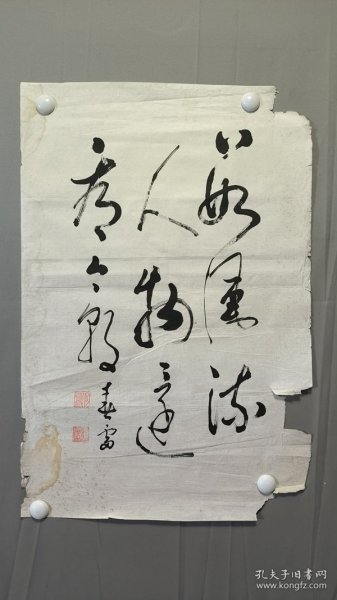 數風流
人物還
看今朝
春雷
孔夫子旧书网
www.kongfz.com